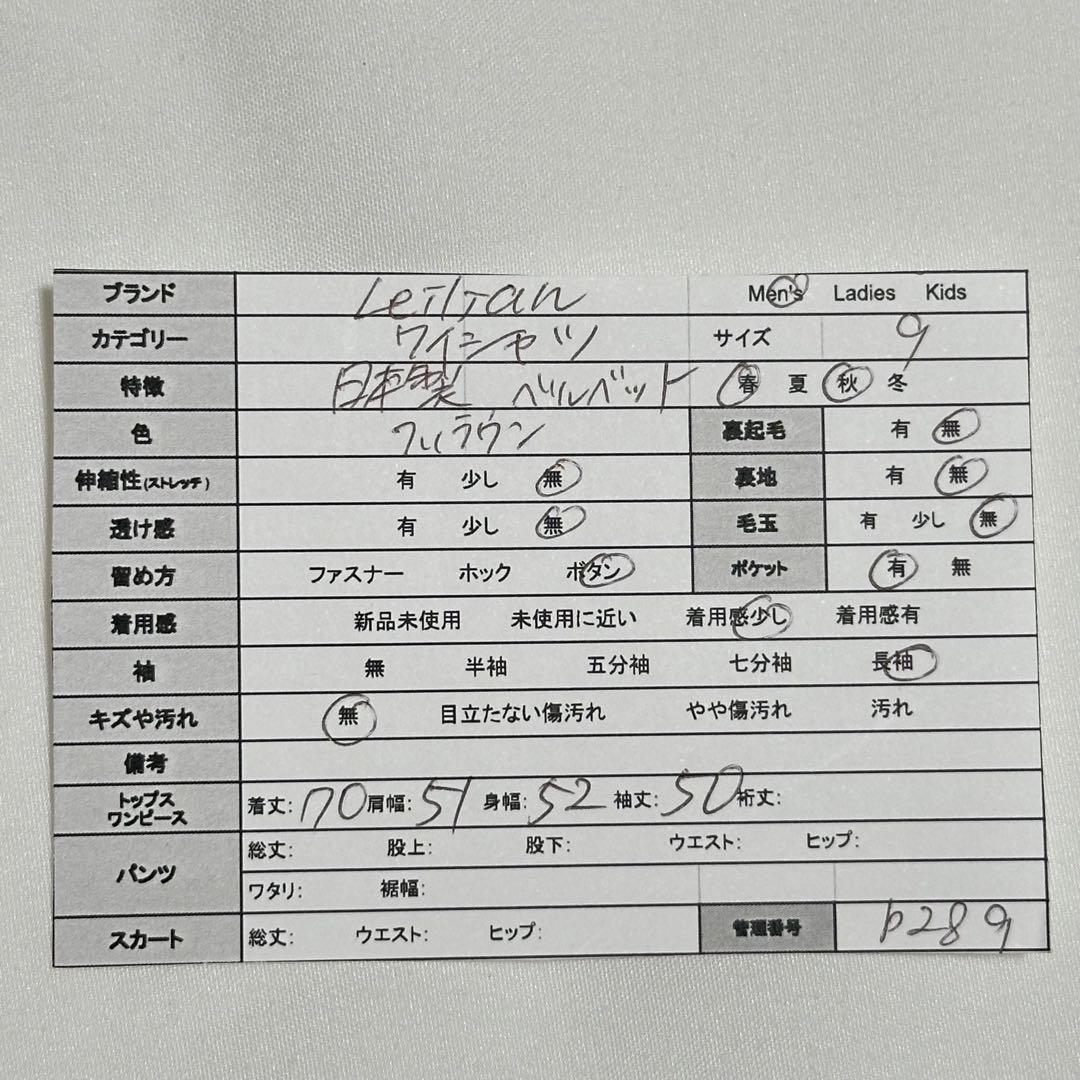 ブランド Leilian Men's Ladies Kids
カテゴリー ワイシャツ サイズ 9
特徴 日本製 ベルベット 春 夏 秋 冬
色 裏起毛 有 無
伸縮性(ストレッチ) 有 少し 無 裏地 有 無
透け感 有 少し 無 毛玉 有 少し 無
留め方 ファスナー ホック ボタン ポケット 有 無
着用感 新品未使用 未使用に近い 着用感少し 着用感有
袖 無 半袖 五分袖 七分袖 長袖
キズや汚れ 無 目立たない傷汚れ やや傷汚れ 汚れ
備考
トップス
ワンピース 着丈: 70 肩幅: 51 身幅: 52 袖丈: 50 裄丈:
パンツ 総丈: 股上: 股下: ウエスト: ヒップ:
ワタリ: 裾幅:
スカート 総丈: ウエスト: ヒップ: 管理番号 b289